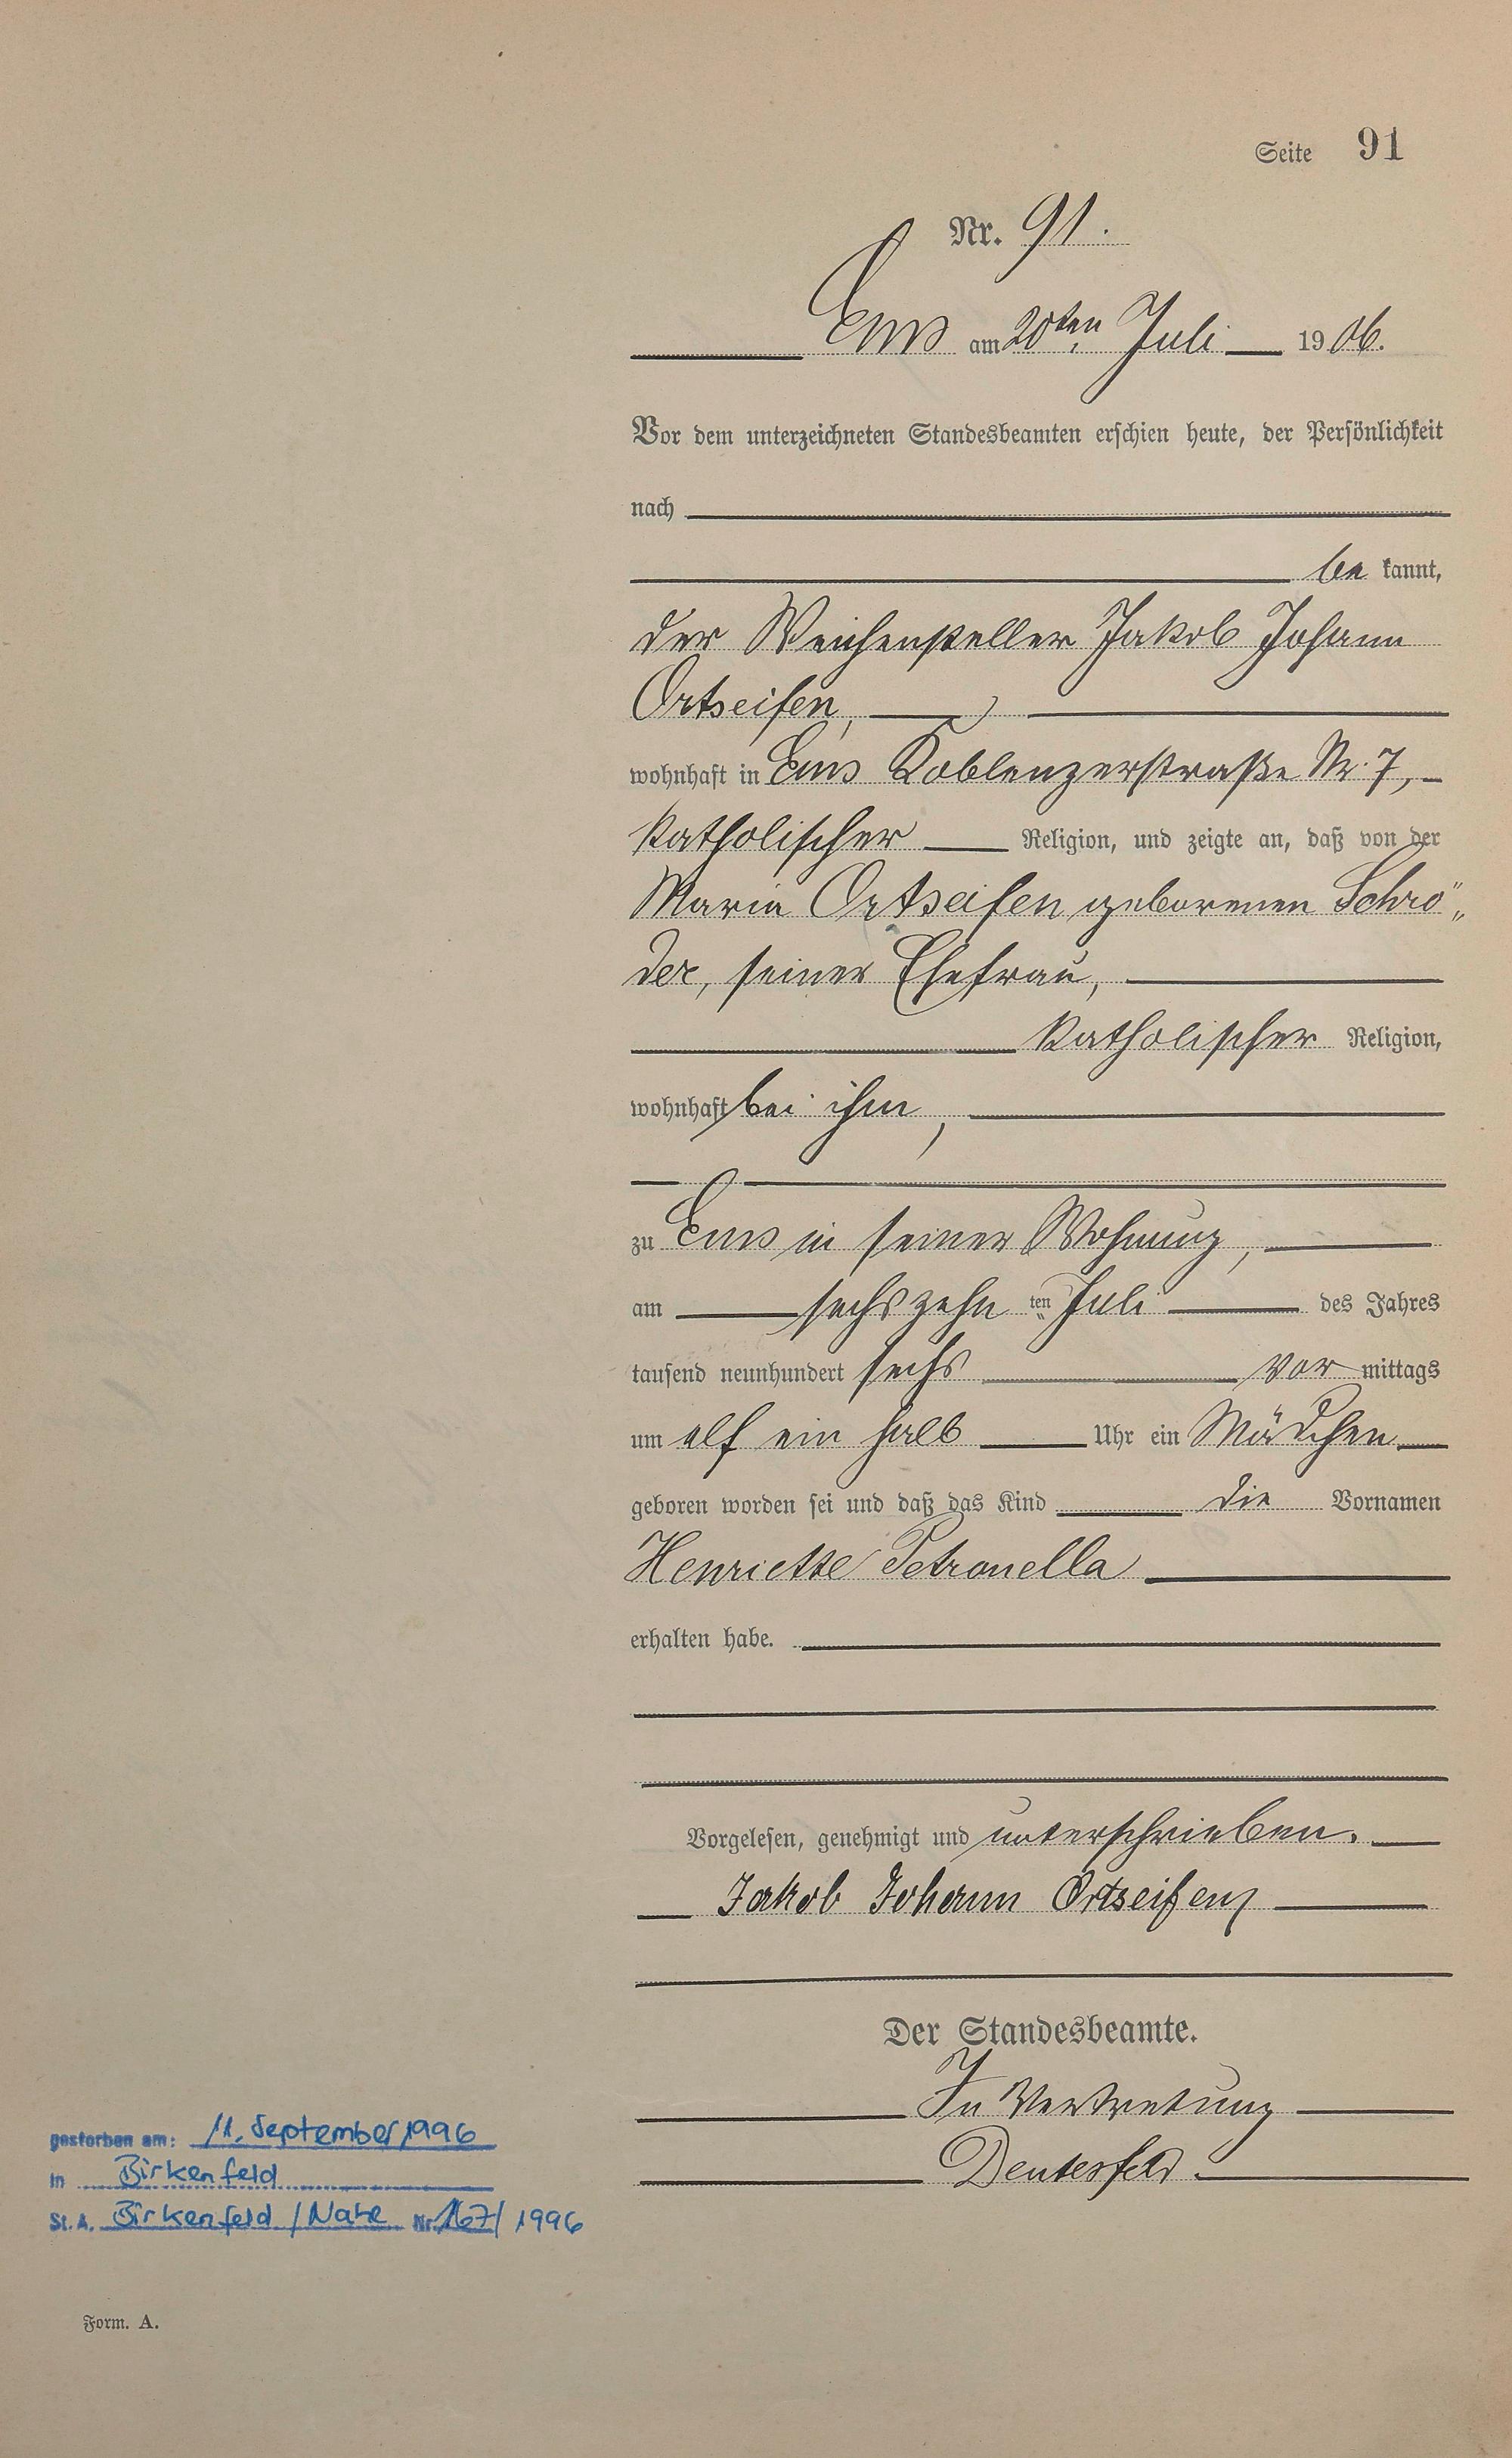 Seite 91
Nr. 91.
Ems am 20ten Juli 1906.
Vor dem unterzeichneten Standesbeamten erschien heute, der Persönlichkeit
nach
be kannt,
der Weichensteller Jakob Johann
Ortseifen,
wohnhaft in Ems Koblenzerstraße Nr. 7,
katholischer Religion, und zeigte an, daß von der
Maria Ortseifen geborenen Schrö„
der, seiner Ehefrau,
katholischer Religion,
wohnhaft bei ihm,
zu Ems in seiner Wohnung,
am sechszehn ten Juli des Jahres
tausend neunhundert sechs vor mittags
um elf ein halb Uhr ein Mädchen
geboren worden sei und daß das Kind die Vornamen
Henriette Petronella
erhalten habe.
Vorgelesen, genehmigt und unterschrieben.
Jakob Johann Ortseifen
Der Standesbeamte.
In Vertretung
Deutesfeld.
gestorben am: 11. September 1996
in Birkenfeld
St. A. Birkenfeld / Nahe Nr. 167/ 1996
Form. A.